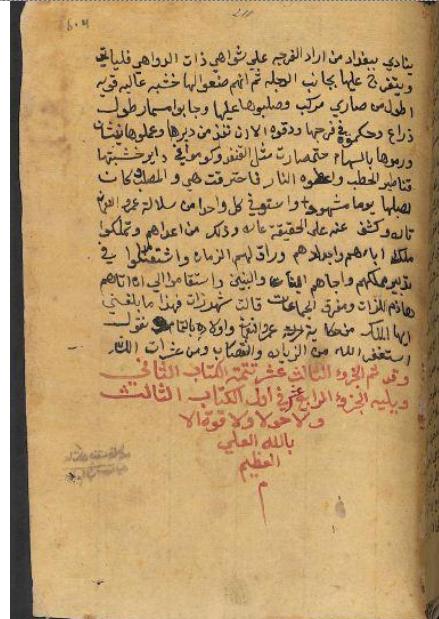 ينادي ببغداد من اراد الفرجه على شواهي ذات الدواهي فلياتي
ويتفرج عليها بجانب الدجله ثم انهم صنعوا لها خشبه عاليه قويه
اطول من صاري مركب وصلبوها عليها وجابوا مسمار طول
ذراع في فرجها ودقوه الا ان نفذ من دبرها وعملوها نيشان
ورموها بالسهام حتى صارت مثل القنفد وكوموا في داير خشبتها
قناطير الحطب النار فاحترقت هي والمصلب كان
لصلبها يوما مشهود واستوفي كل واحد من سلالة عمر النعمان
تاره وكشف عنه على الحقيقة عاره وذكر من اعداهم وتملكوا
ملك اباءهم واجدادهم وراق لهم الزمان واشتغلوا في
تدبير مملكهم وجاهم والبنين واستقاموا الى ان اتاهم
هاذم اللذات ومفرق الجماعات قالت شهرزات فهذا ما بلغني
ايها الملك من حكاية عمر النعمان واولاده بالتمام نقول
استغفر الله من الزياده والنقصان ومن عثرات اللسان
وقد تم الجزوء الثالث عشر تتمة الكتاب الثاني
ويليه الجزوء الرابع عشر في اول الكتاب الثالث
ولا حولا ولا قوة الا
بالله العلي
العظيم
م